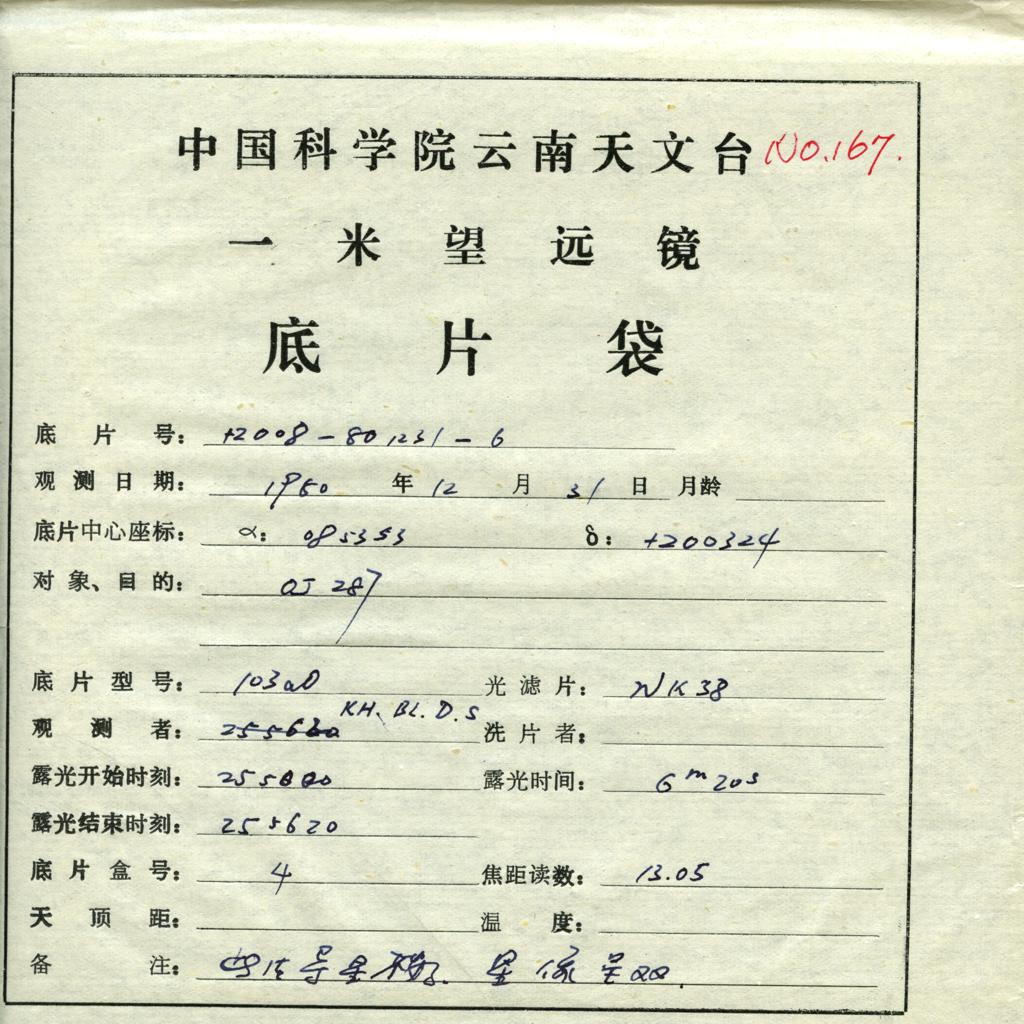 中国科学院云南天文台 No.167.
一米望远镜
底片袋
底片号: +2008-801231-6
观测日期: 1980 年 12 月 31 日 月龄
底片中心座标: α: 085353 δ: +200324
对象、目的: OJ 287
底片型号: 103aD 光滤片: WK38
观测者: KH. BL. D.S 洗片者:
露光开始时刻: 255000 露光时间: 6m20s
露光结束时刻: 255620
底片盒号: 4 焦距读数: 13.05
天顶距: 温度:
备注: 导星 星像呈